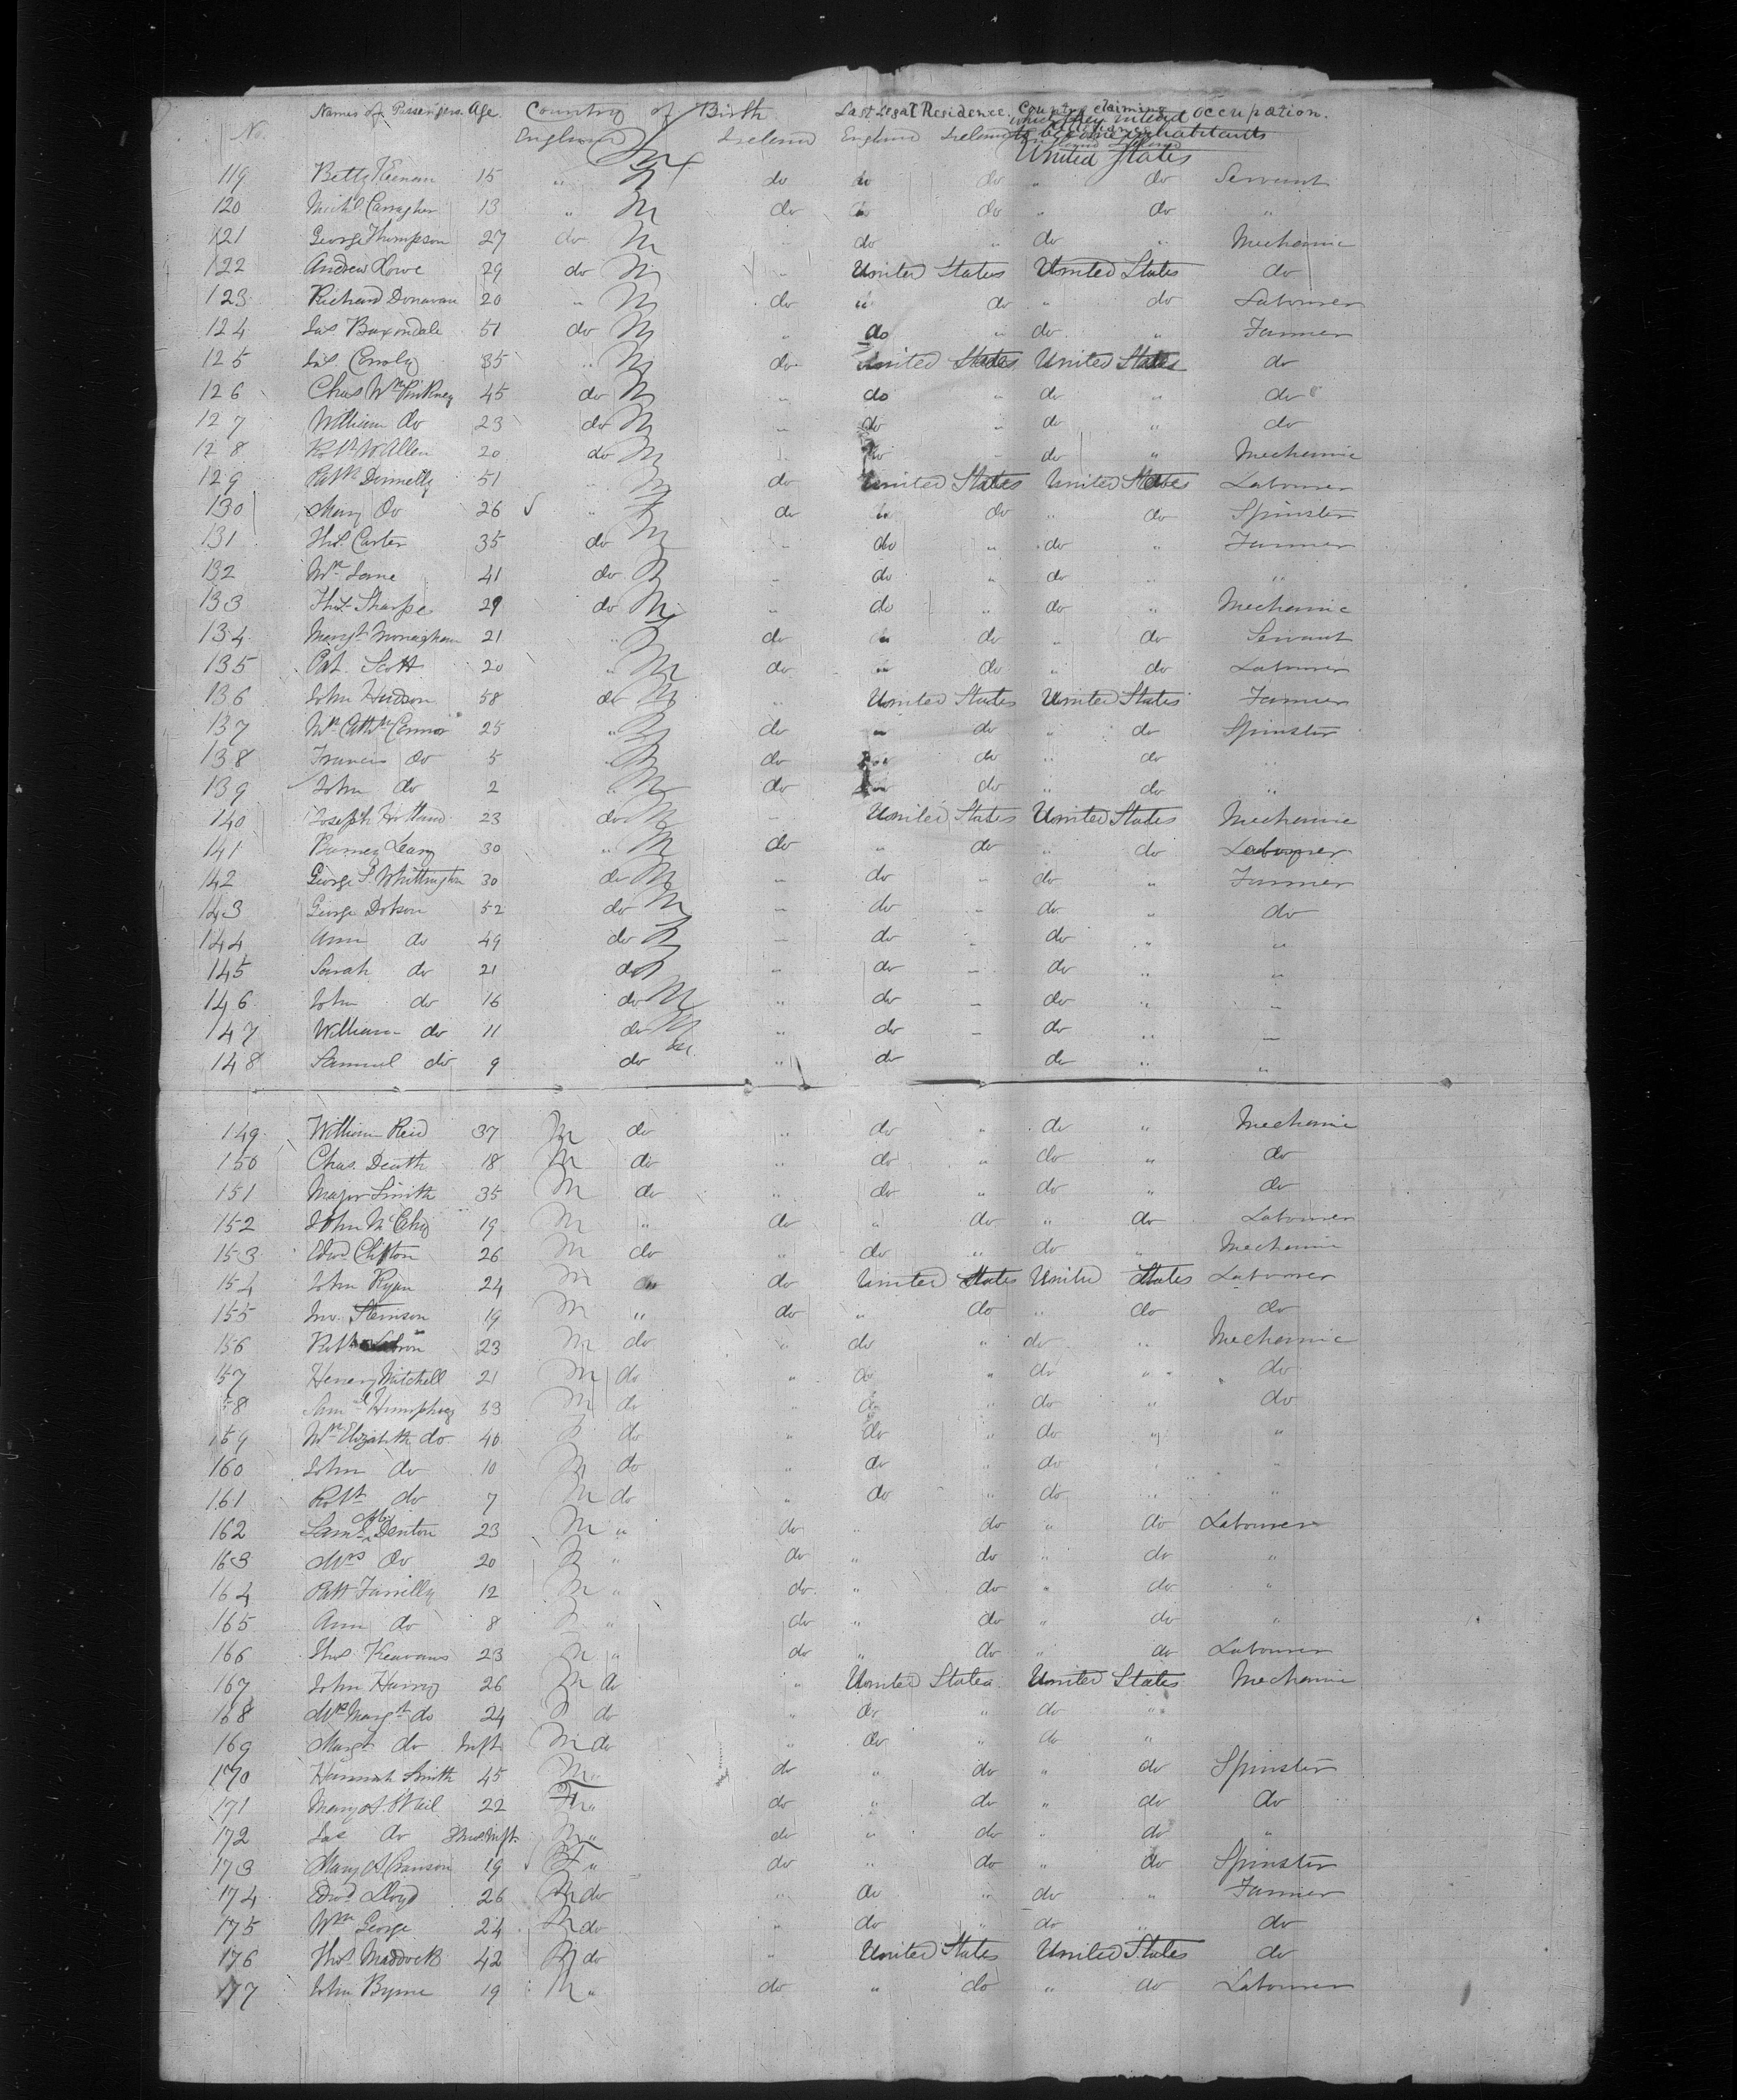 No. Names of Passengers Age Country of Birth Last Legal Residence Country claiming Occupation.
which they intend
England Sex Ireland England Ireland to become inhabitants
United States
119 Betty Keenan 15 " do do do " do Servant
120 Michl Carragher 13 " M do do do " do "
121 George Thompson 27 do M " do " do " Mechanic
122 Andrew Lowe 29 do M " United States United States do
123 Richard Donavan 20 " M do " do " do Labourer
124 Jas Baxondale 51 do M " do " do " Farmer
125 Jas 35 " M do United States United States do
126 Chas Wm Pinkney 45 do M " do " do " do
127 William do 23 do M " do " do " do
128 Robt W Allen 20 do M " do " do " Mechanic
129 Patk Donnelly 51 " M do United States United States Labourer
130 Mary Do 26 " F do " do " do Spinster
131 Thos. Carter 35 do M " do " do " Farmer
132 Wm Lane 41 do M " do " do " "
133 Thos. Sharpe 29 do M " do " do " Mechanic
134 Margt Monaghan 21 " do " do " do Servant
135 Pat. Scott 20 " M do " do " do Labourer
136 John Hudson 58 do M " United States United States Farmer
137 Connor 25 " do " do " do Spinster
138 Francis do 5 " do " do " do "
139 John do 2 " M do " do " do "
140 Joseph Holland 23 do M " United States United States Mechanic
141 Barney Leary 30 " M do " do " do Labourer
142 George S. Whittington 30 do M " do " do " Farmer
143 George Dobson 52 do M " do " do " do
144 Ann do 49 do F " do " do " "
145 Sarah do 21 do F " do " do " "
146 John do 16 do M " do " do " "
147 William do 11 do M " do " do " "
148 Samuel do 9 do M " do do " "
149 William Reid 37 M do " do " do " Mechanic
150 Chas. Death 18 M do " do " do " do
151 Major Smith 35 M do " do " do " do
152 John 19 M " do " do " do Labourer
153 Edwd Clifton 26 M do " do " do " Mechanic
154 John Ryan 24 M do United States United States Labourer
155 Jno. Stenson 19 M " do " do " do do
156 Robt 23 M do " do " do " Mechanic
157 Henry Mitchell 21 M do " do " do " do
158 Saml Humphrey 33 M do " do " do " do
159 Mrs Elizabeth do 40 F do " do " do " "
160 John do 10 M do " do " do " "
161 Robt do 7 M do " do " do " "
162 Saml Denton 23 M " do " do " do Labourer
163 Mrs do 20 F " do " do " do "
164 Patt Farrelly 12 M " do " do " do "
165 Ann do 8 F " do " do " do "
166 Thos Keavans 23 M " do " do " do Labourer
167 John 26 M do " United States United States Mechanic
168 Mrs Margt do 24 F do " do " do "
169 Margt do Inft M do " do " do "
170 Hannah Smith 45 " do " do " do Spinster
171 Mary A. O'Neil 22 F " do " do " do do
172 Jas do Inft. M " do " do " do "
173 Mary A 19 F " do " do " do Spinster
174 Edwd Lloyd 26 M do " do " do " Farmer
175 Wm George 24 M do " do " do " do
176 Thos. Maddock 42 M do " United States United States do
177 John Byrne 19 M " do " do " do Labourer